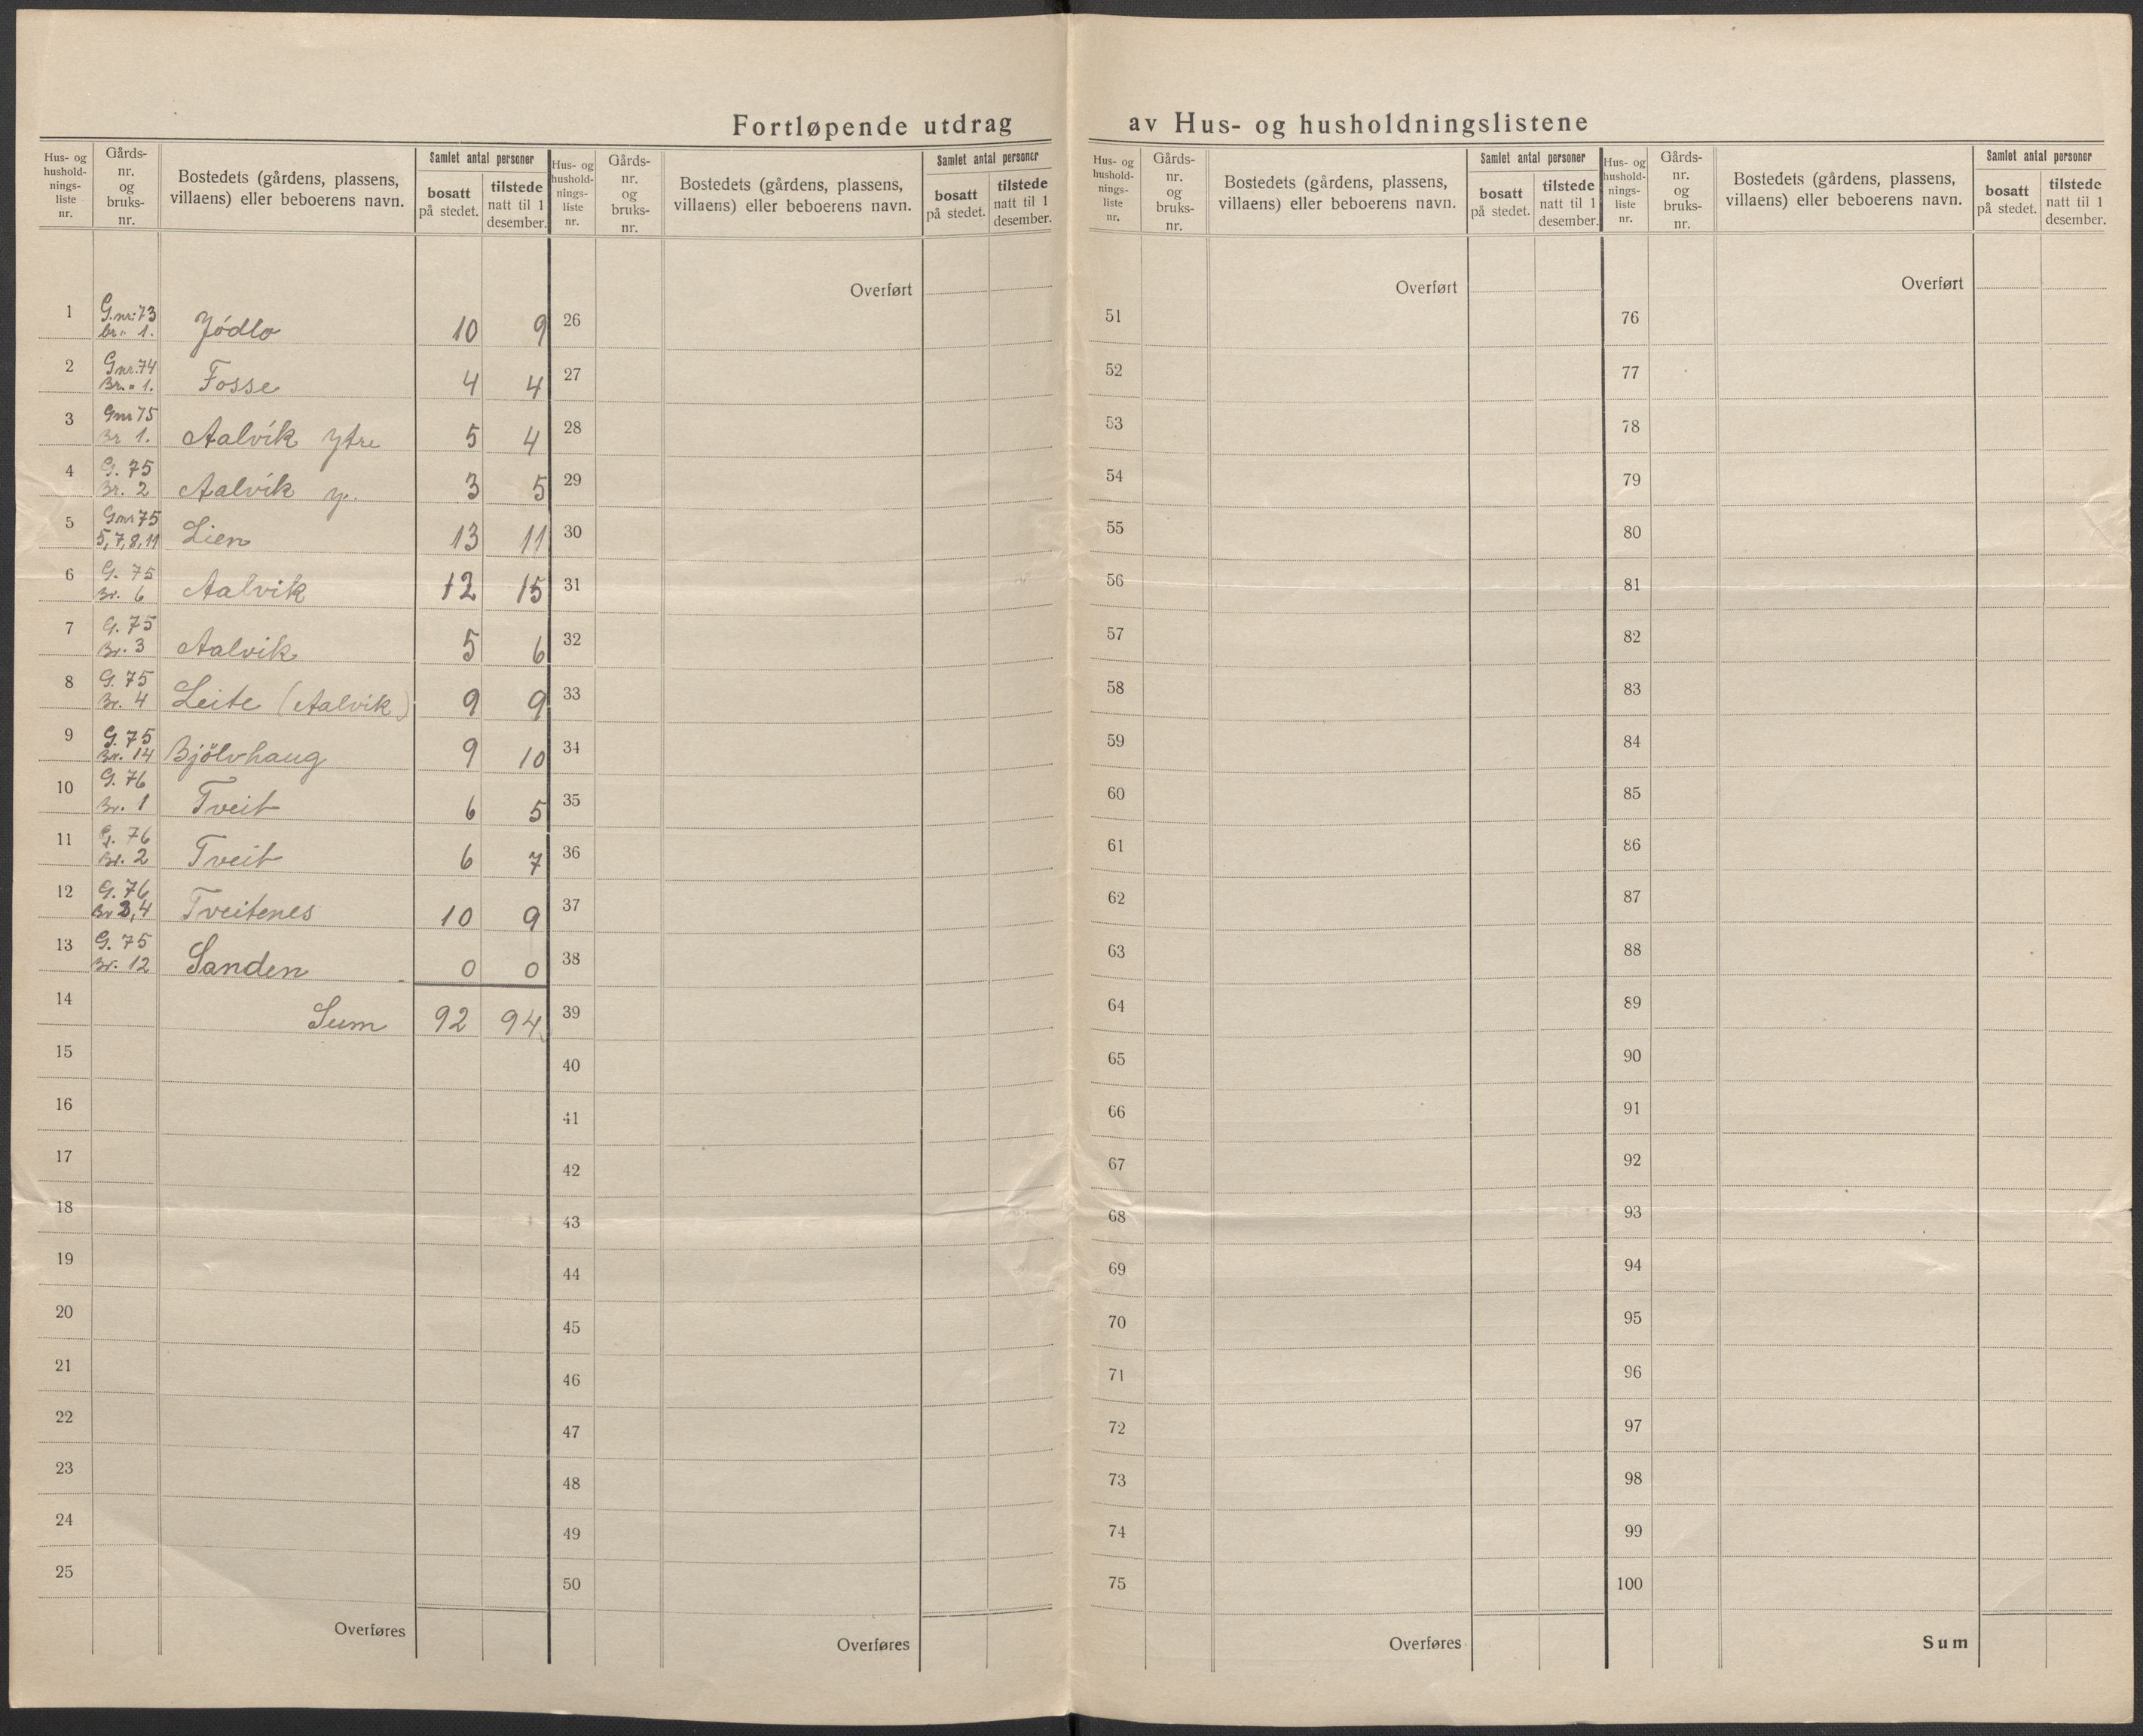 Fortløpende utdrag av Hus- og husholdningslistene
Hus- og hushold-nings-liste nr.
Gårds-nr. og bruks-nr.
Bostedets (gårdens, plassens, villaens) eller beboerens navn.
Samlet antal personer
bosatt på stedet.
tilstede natt til 1 desember.
1 G.nr. 73 br. " 1. Jódlo 10 9
2 Gnr. 74 Br. " 1. Fosse 4 4
3 Gnr 75 Br 1. Aalvik Ytre 5 4
4 G. 75 Br. 2 Aalvik y. 3 5
5 Gnr 75 5,7,8,11 Lien 13 11
6 G. 75 Br. 6 Aalvik 12 15
7 G. 75 Br. 3 Aalvik 5 6
8 G. 75 Br. 4 Leite (Aalvik) 9 9
9 G. 75 Br. 14 Bjölvhaug 9 10
10 G. 76 Br. 1 Tveit 6 5
11 G. 76 Br. 2 Tveit 6 7
12 G. 76 Br 3,4 Tveitenes 10 9
13 G. 75 Br. 12 Sanden 0 0
14 Sum 92 94
15
16
17
18
19
20
21
22
23
24
25
Overføres
Hus- og hushold-nings-liste nr.
Gårds-nr. og bruks-nr.
Bostedets (gårdens, plassens, villaens) eller beboerens navn.
Samlet antal personer
bosatt på stedet.
tilstede natt til 1 desember.
Overført
26
27
28
29
30
31
32
33
34
35
36
37
38
39
40
41
42
43
44
45
46
47
48
49
50
Overføres
Hus- og hushold-nings-liste nr.
Gårds-nr. og bruks-nr.
Bostedets (gårdens, plassens, villaens) eller beboerens navn.
Samlet antal personer
bosatt på stedet.
tilstede natt til 1 desember.
Overført
51
52
53
54
55
56
57
58
59
60
61
62
63
64
65
66
67
68
69
70
71
72
73
74
75
Overføres
Hus- og hushold-nings-liste nr.
Gårds-nr. og bruks-nr.
Bostedets (gårdens, plassens, villaens) eller beboerens navn.
Samlet antal personer
bosatt på stedet.
tilstede natt til 1 desember.
Overført
76
77
78
79
80
81
82
83
84
85
86
87
88
89
90
91
92
93
94
95
96
97
98
99
100
Sum